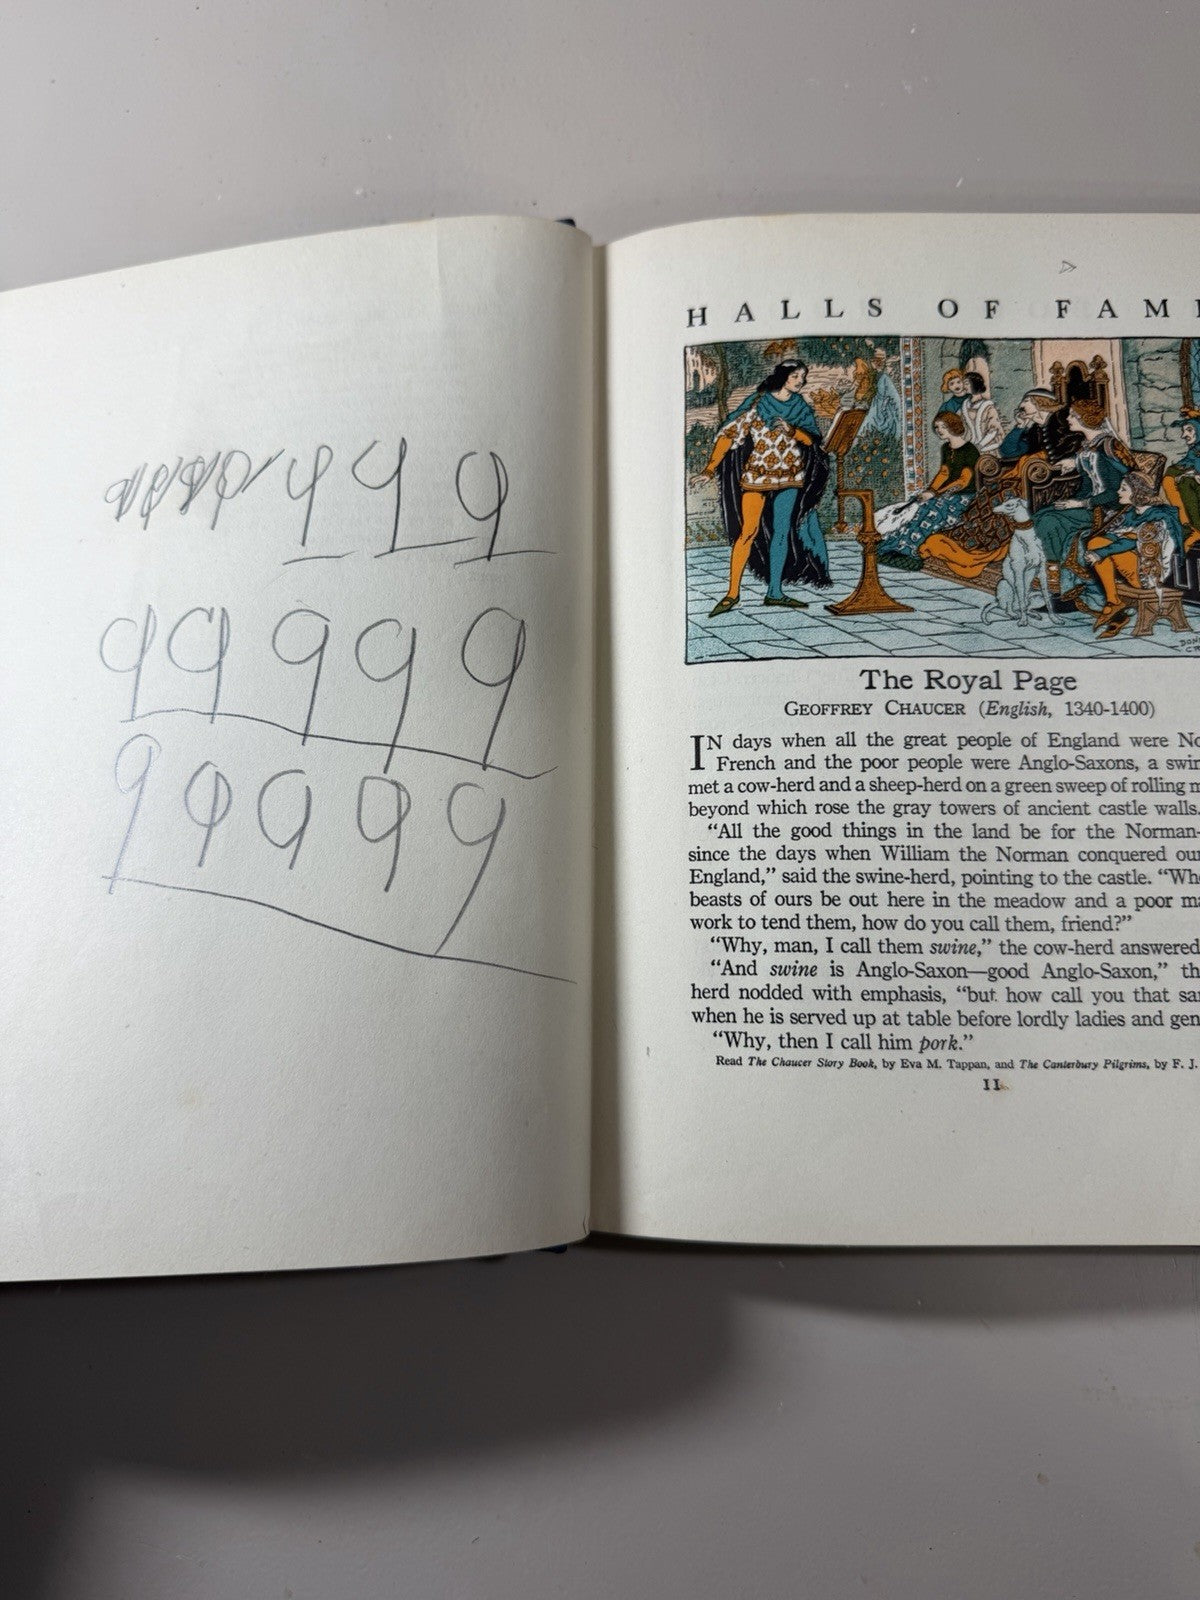 9 9 9
9 9 9 9 9
9 9 9 9 9
HALLS OF FAM
The Royal Page
GEOFFREY CHAUCER (English, 1340-1400)
IN days when all the great people of England were No
French and the poor people were Anglo-Saxons, a swin
met a cow-herd and a sheep-herd on a green sweep of rolling m
beyond which rose the gray towers of ancient castle walls.
“All the good things in the land be for the Norman-
since the days when William the Norman conquered our
England,” said the swine-herd, pointing to the castle. “Whe
beasts of ours be out here in the meadow and a poor ma
work to tend them, how do you call them, friend?”
“Why, man, I call them swine,” the cow-herd answered
“And swine is Anglo-Saxon—good Anglo-Saxon,” th
herd nodded with emphasis, “but how call you that sa
when he is served up at table before lordly ladies and gen
“Why, then I call him pork.”
Read The Chaucer Story Book, by Eva M. Tappan, and The Canterbury Pilgrims, by F. J.
11